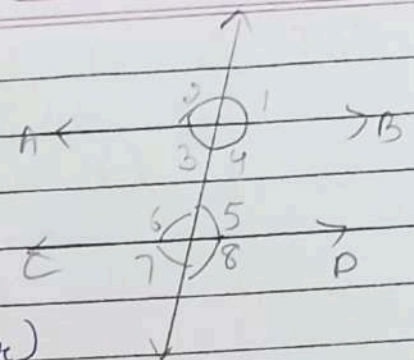 2 1
A B
3 4
6 5
C D
7 8